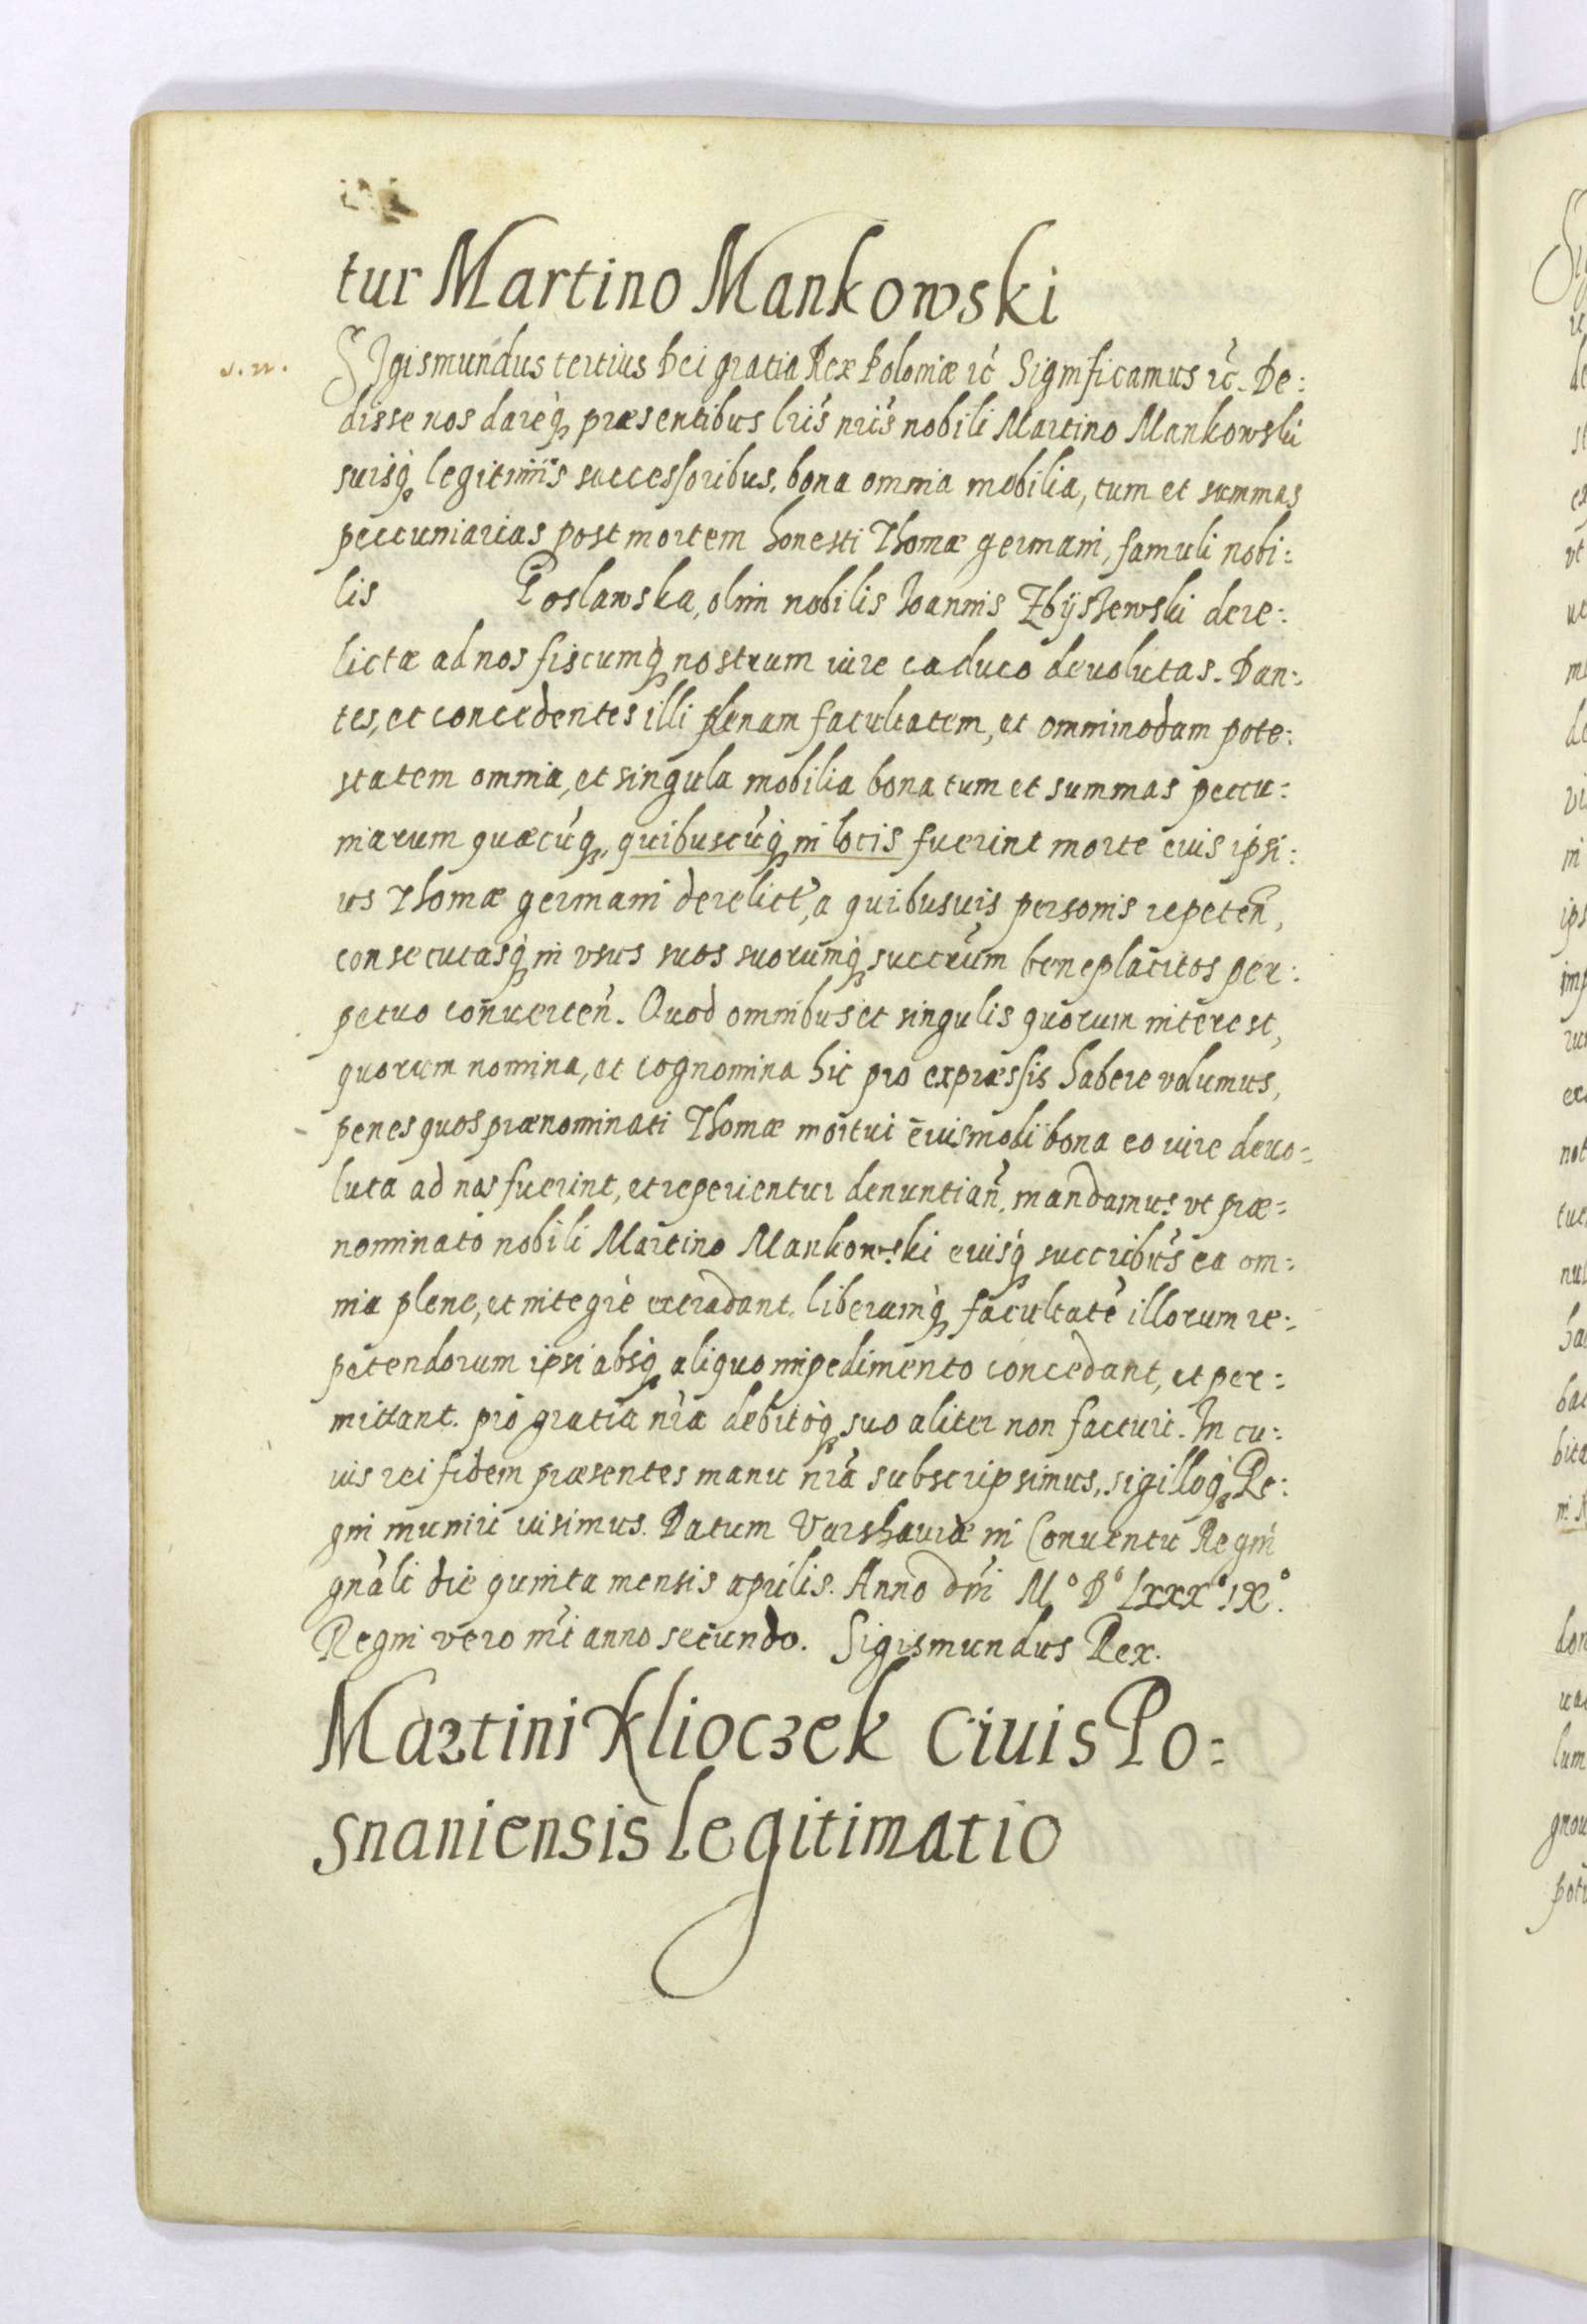 tur Martino Mankowski
s. n.
SIgismundus tertius Dei gratia Rex Poloniæ rc̃ Significamus rc̃. De:
disse nos dareq́ꝫ præsentibus lris̃ nris̃ nobili Martino Mankowski
suisq́ꝫ legitimis successoribus, bona omnia mobilia, tum et summas
peccuniarias post mortem honesti Thomæ germani, famuli nobi:
lis Poslawska, olim nobilis Ioannis Zbijszewski dere:
lictæ ad nos fiscumq́ꝫ nostrum iure caduco deuolutas. Dan:
tes, et concedentes illi plenam facultatem, et omnimodam pote:
statem omnia, et singula mobilia bona tum et summas peccu:
niarum quæcũqꝫ, quibuscũqꝫ in locis fuerint morte eius ipsi:
us Thomæ germani derelict̃, a quibusuis personis repeteñ,
consecutasq́ꝫ in vsus suos suorumq́ꝫ succr̃um beneplacitos per:
petuo conuerteñ. Quod omnibus et singulis quorum interest,
quorum nomina, et cognomina hic pro expræssis habere volumus,
penes quos prænominati Thomæ mortui eiusmodi bona eo iure deuo:
luta ad nos fuerint, et reperientur denuntiañ, mandamus vt præ:
nominato nobili Martino Mankowski eiusq́ꝫ succribus̃ ea om:
nia plene, et integrè extradant, liberamq́ꝫ facultatẽ illorum re:
petendorum ipsi absq́ꝫ aliquo impedimento concedant, et per:
mittant. pro gratia nrã debitoq́ꝫ suo aliter non facturi. In cu:
ius rei fidem præsentes manu nrã subscripsimus, sigilloq́ꝫ Re:
gni muniri iusimus. Datum Varshauiæ in Conuentu Regni
gnãli die quinta mensis aprilis. Anno dñi M° D° Lxxx° IX°.
Regni vero nri̊ anno secundo. Sigismundus Rex.
Martini Klioczek Ciuis Po:
snaniensis legitimatio